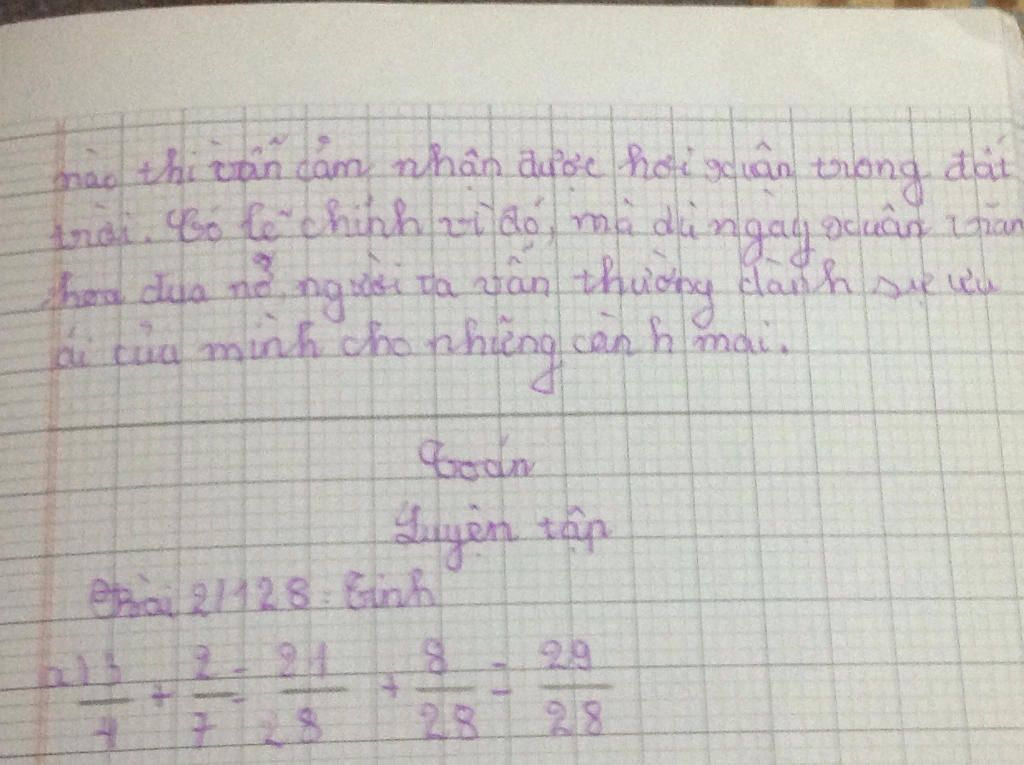 nào thì vẫn cảm nhận được hơi xuân trong đất
trời. Có lẽ chính vì đó, mà dù ngày xuân trăm
hoa đua nở, người ta vẫn thường dành sự ưu
ái của mình cho những cành mai.
Toán
Luyện tập
Bài 2/128: Tính
a) 3/4 + 2/7 = 21/28 + 8/28 = 29/28